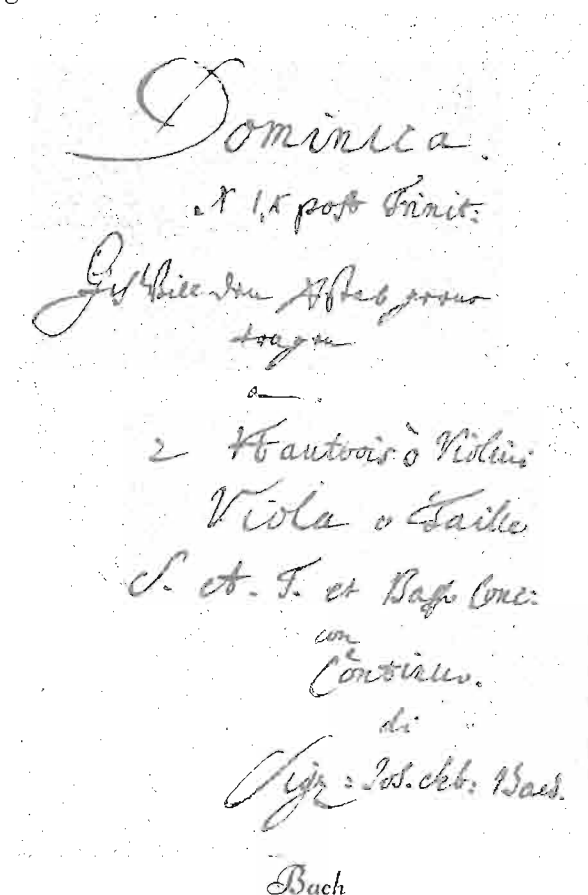 Dominica.
post Trinit:
Ich Will den Xstab gerne
tragen
a
2 Hautbois ò Violini
Viola o Taille
S. A. T. et Basso Conc:
con
e
Continuo.
di
Sign: Joh. Seb: Bach.
Bach